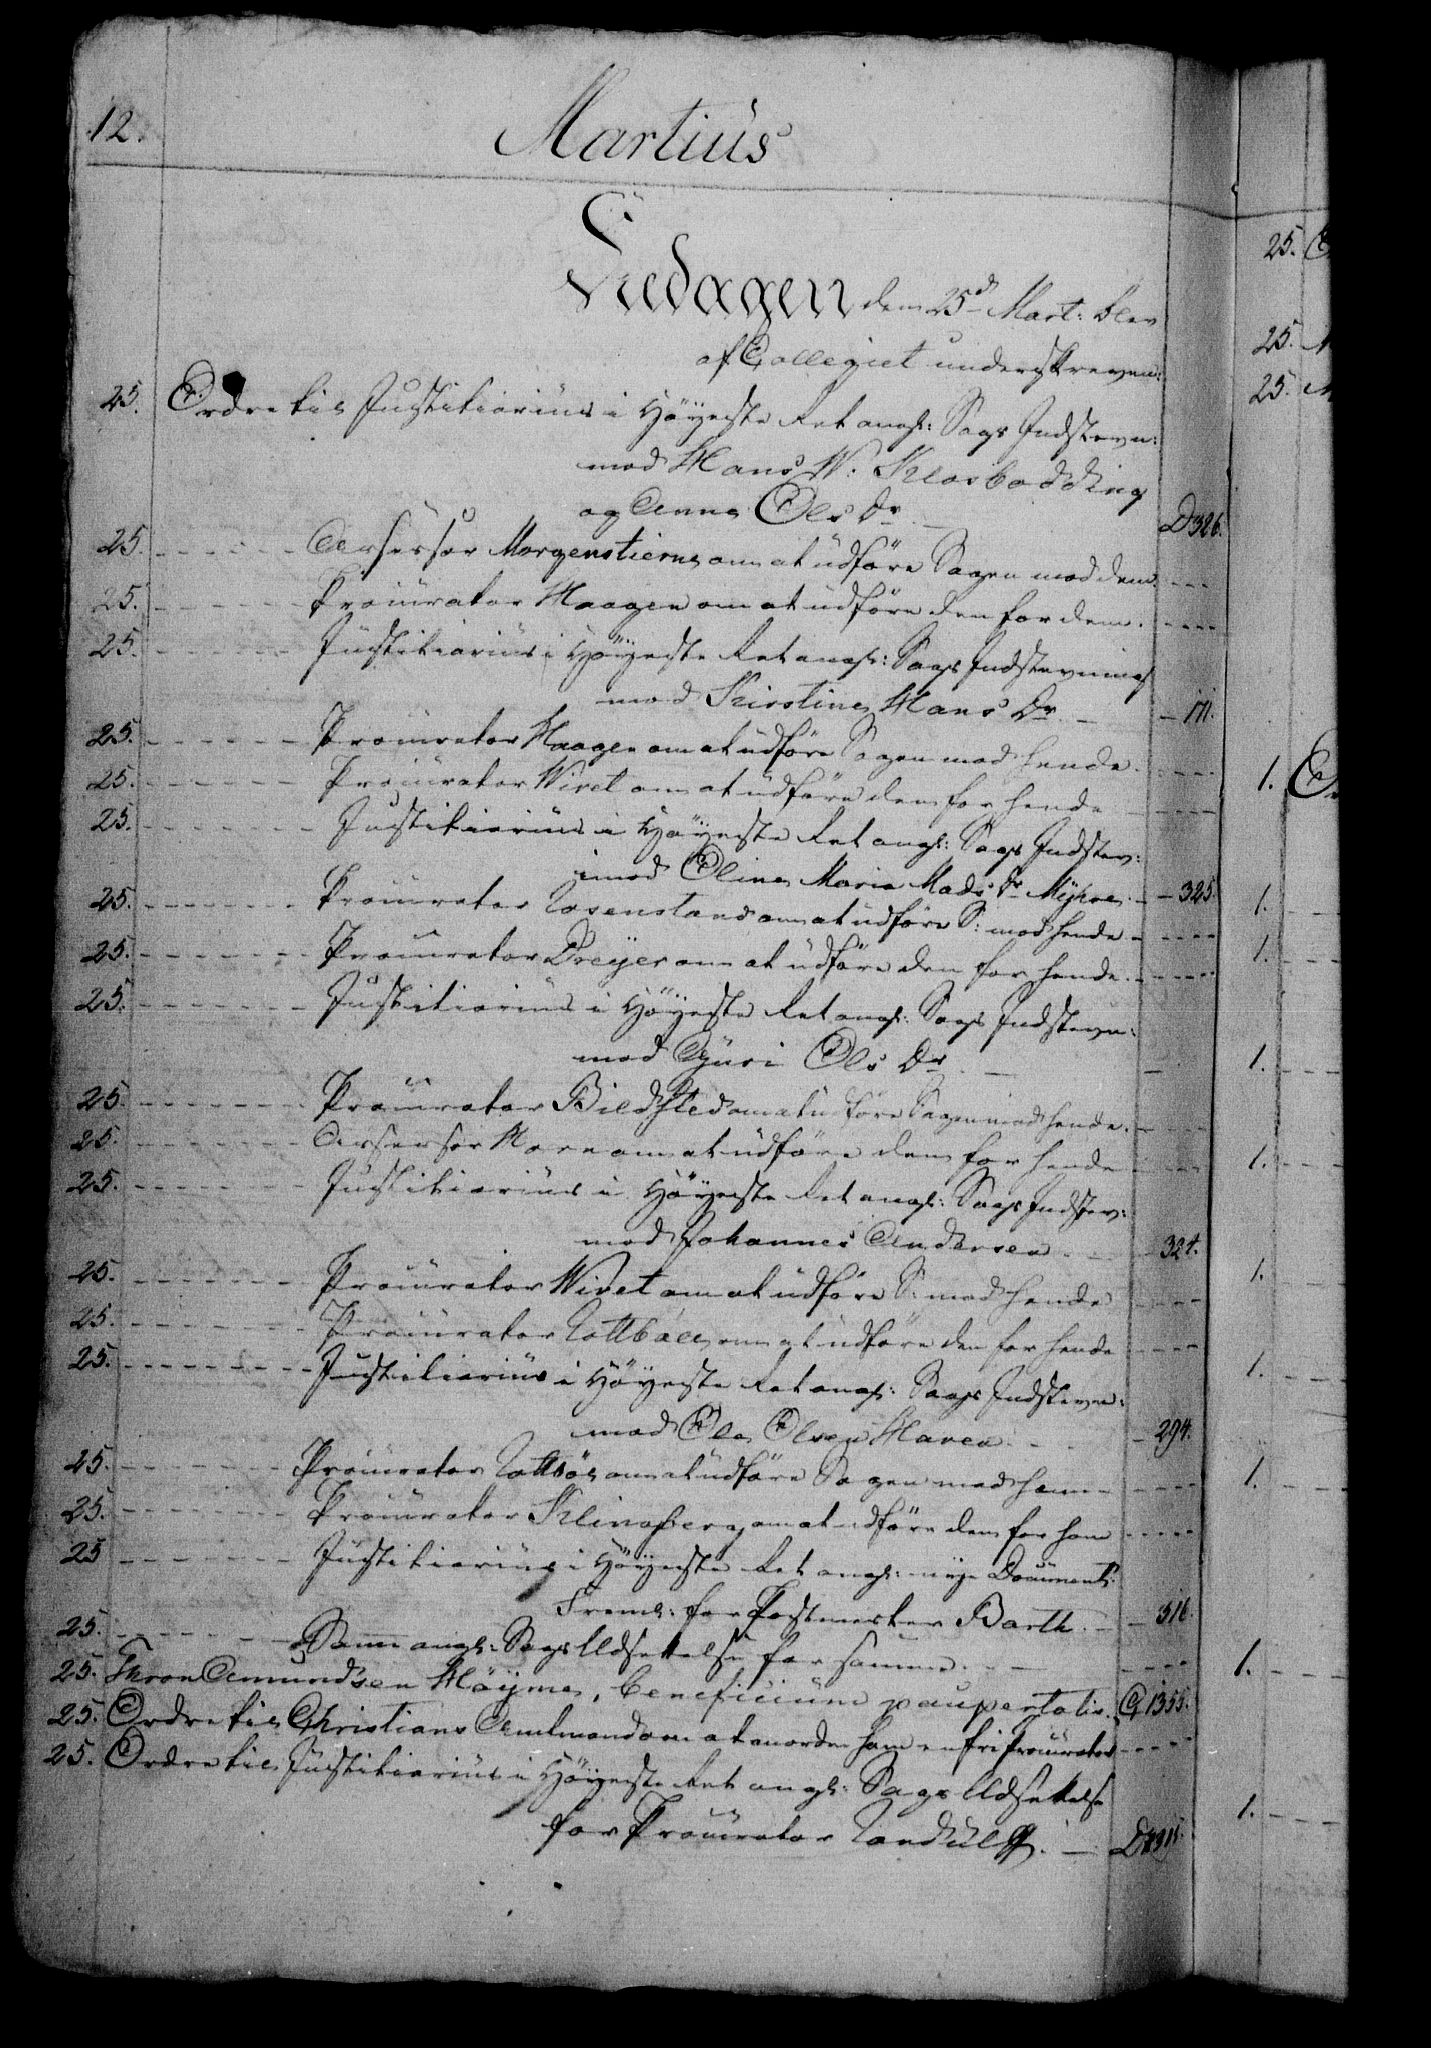 12.
Martius
Fredagen dem 25d Mart: blev
af Collegiet underskreven:
25. Ordre til Justitiarius i Höyeste Ret angl: Sags Indstevn:
mod Hans W.
og Anna Ols Dr. D326.
25. Assessor Morgenstierne om at udföre Sagen mod dem
25. Procurator Haagen om at udföre den for dem.
25. Justitiarius i Höyeste Ret angl: Sags Indstevning
mod Kirstine Hans Dr. 171.
25. Procurator Haagen om at udföre Sagen mod hende.
25. Procurator Wivet om at udföre den for hende
25. Justitiarius i Höyeste Ret angl: Sags Indstev:
imod Oline Maria Mads Dr Myhre. 325.
25. Procurator Rosenstand om at udföre S: mod hende
25. Procurator Dreyer om at udföre den for hende.
25. Justitiarius i Höyeste Ret angl: Sags Indstevn:
mod Guri Ols Dr.
25. Procurator Bildsted om at udföre Sagen mod hende.
25. Assessor om at udföre dem for hende
25. Justitiarius i Höyeste Ret angl: Sags Indstev:
mod Johannes Andersen. 324.
25. Procurator Wivet om at udföre S: mod hende
25. Procurator Rottböll om at udföre den for hende
25. Justitiarius i Höyeste Ret angl: Sags Indstevn:
mod Ole Olsen 294.
25. Procurator Rottböl om at udföre Sagen mod ham
25. Procurator Klingberg om at udföre dem for ham
25 Justitiarius i Höyeste Ret angl: nye Documents:
Freml: for Postmester Barth. 316.
25. Samme angl: Sags Udsettelse for samme.
25. Thron Amundsen, beneficium paupertatis. G1355.
25. Ordre til Christians Amtmand om at anorden ham en fri Procurator
25. Ordre til Justitiarius i Höyeste Ret angl: Sags Udsettelse
for Procurator
25.
25.
25.
1.
1.
1.
1.
1.
1.
1.
1.
1.
1.